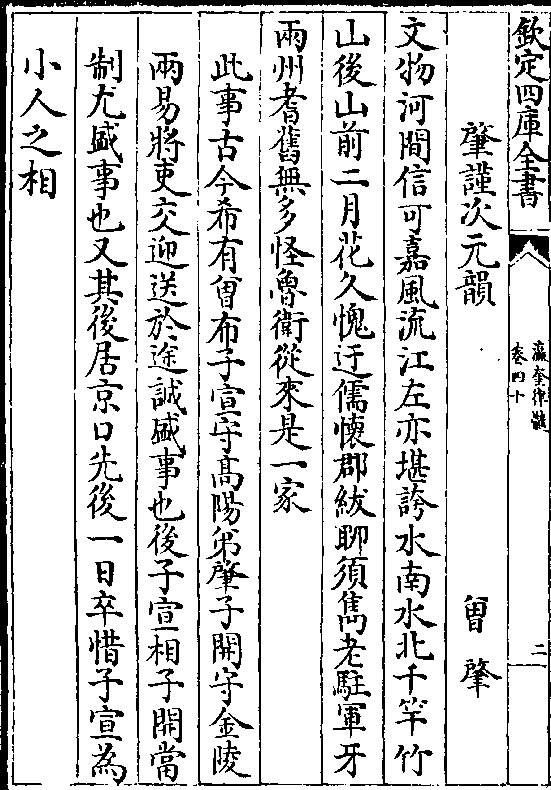 欽定四庫全書
瀛奎律髓
卷四十
二
肇謹次元韻　曾肇
文物河間信可嘉風流江左亦堪誇水南水北千竿竹
山後山前二月花久愧迂儒懷郡紱聊須雋老駐軍牙
兩州耆舊無多怪魯衛從來是一家
此事古今希有曾布子宣守高陽弟肇子開守金陵
兩易將吏交迎送於途誠盛事也後子宣相子開當
制尤盛事也又其後居京口先後一日卒惜子宣為
小人之相